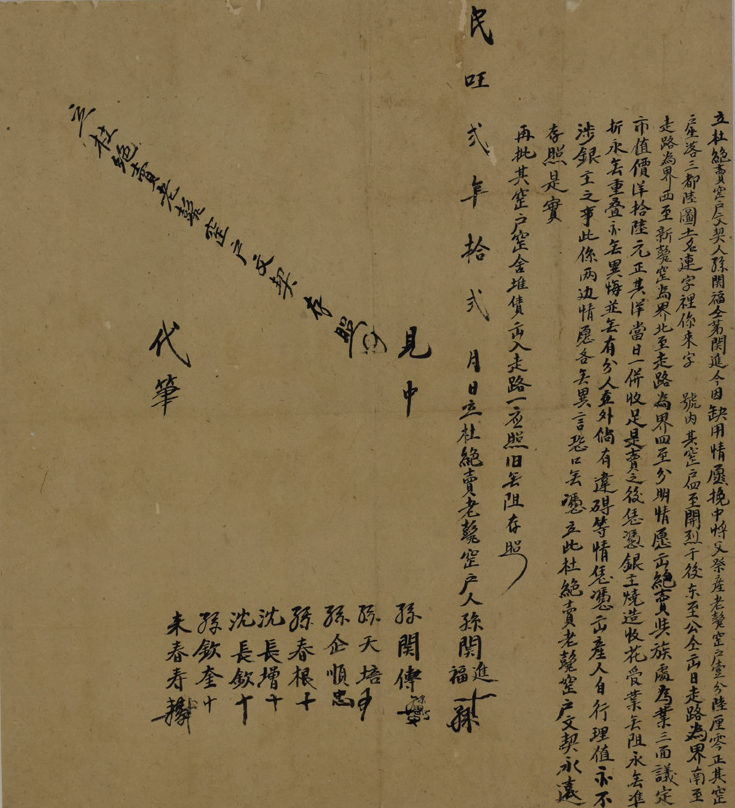 立杜絕賣窑户文契人孫関福仝弟関進今因缺用情愿挽中將父祭産老甏窑户壹分陸厘零正其窑
座落三都陸圖土名連字裡係来字 號内其窑户四至開烈于後东至公仝出日走路為界南至
走路為界西至新甏窑為界北至走路為界四至分明情愿出絕賣與族處為業三面議定
市值價洋拾陸元正其洋當日一併收足是賣之後恁憑銀主燒造收花受業無阻永無準
折永無重叠亦無異悔並無有分人在外倘有違碍等情恁憑出産人自行理值亦不
涉銀主之事此係两边情愿各無異言恐口無憑立此杜絕賣老甏窑户文契永遠
存照是實
再批其窑户窑舍堆債出入走路一应照旧無阻存照
民國弍年拾弍月日立杜絕賣老甏窑户人孫関福進十孫
見中 孫関傳
孫天培
孫企順忠
孫春根十
沈長增十
沈長欽十
孫欽奎十
代筆 来春寿
立杜絕賣老甏窑户文契存照